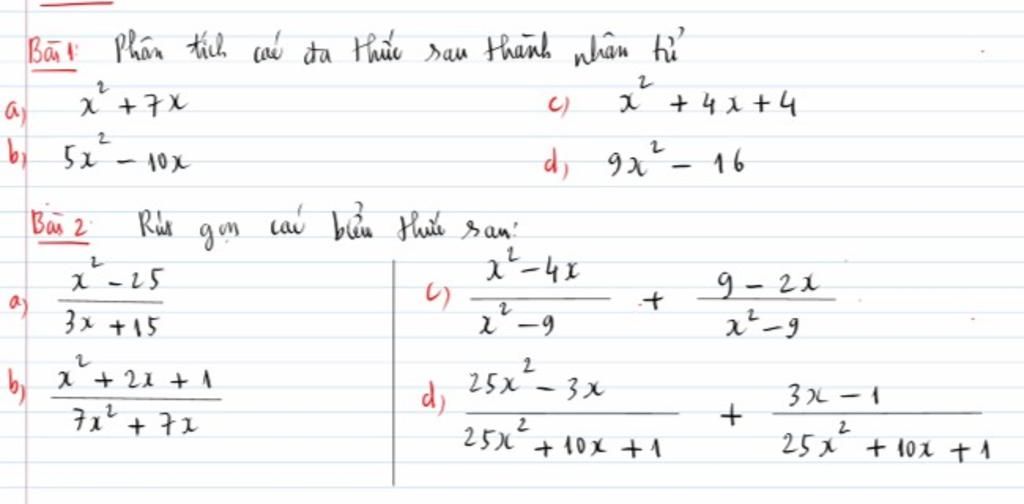 Bài 1: Phân tích các đa thức sau thành nhân tử
a) x² + 7x
c) x² + 4x + 4
b) 5x² - 10x
d) 9x² - 16
Bài 2: Rút gọn các biểu thức sau:
a) (x² - 25)/(3x + 15)
c) (x² - 4x)/(x² - 9) + (9 - 2x)/(x² - 9)
b) (x² + 2x + 1)/(7x² + 7x)
d) (25x² - 3x)/(25x² + 10x + 1) + (3x - 1)/(25x² + 10x + 1)